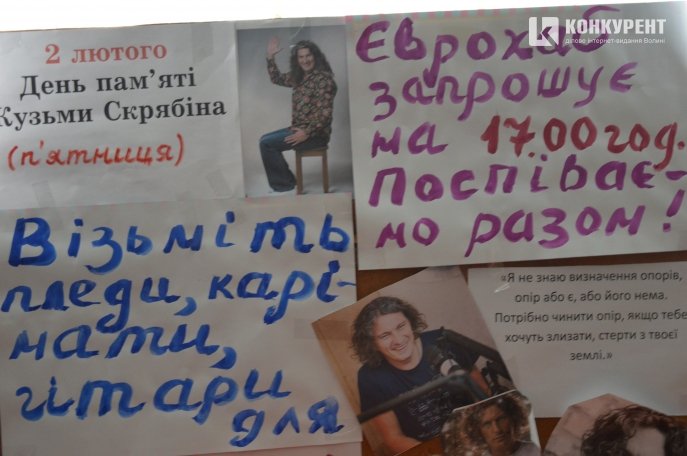 КОНКУРЕНТ
ділове інтернет-видання Волині
2 лютого
День пам'яті
Кузьми Скрябіна
(п'ятниця)
Єврохаб
запрошує
на 17.00 год.
Поспіває-
мо разом!
Візьміть
пледи, карі-
мати,
гітари
для
«Я не знаю визначення опорів,
опір або є, або його нема.
Потрібно чинити опір, якщо тебе
хочуть злизати, стерти з твоєї
землі.»